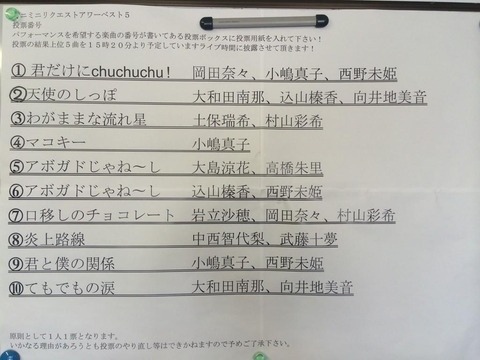 ミニミニリクエストアワーベスト5
投票番号
パフォーマンスを希望する楽曲の番号が書いてある投票ボックスに投票用紙を入れて下さい！
投票の結果上位5曲を15時20分より予定していますライブ時間に披露させて頂きます！
① 君だけにchuchuchu！ 岡田奈々、小嶋真子、西野未姫
②天使のしっぽ 大和田南那、込山榛香、向井地美音
③わがままな流れ星 土保瑞希、村山彩希
④マコキー 小嶋真子
⑤アボガドじゃね～し 大島涼花、高橋朱里
⑥アボガドじゃね～し 込山榛香、西野未姫
⑦口移しのチョコレート 岩立沙穂、岡田奈々、村山彩希
⑧炎上路線 中西智代梨、武藤十夢
⑨君と僕の関係 小嶋真子、西野未姫
⑩てもでもの涙 大和田南那、向井地美音
原則として1人1票となります。
いかなる理由があろうとも投票のやり直し等はできかねますので予めご了承下さい。